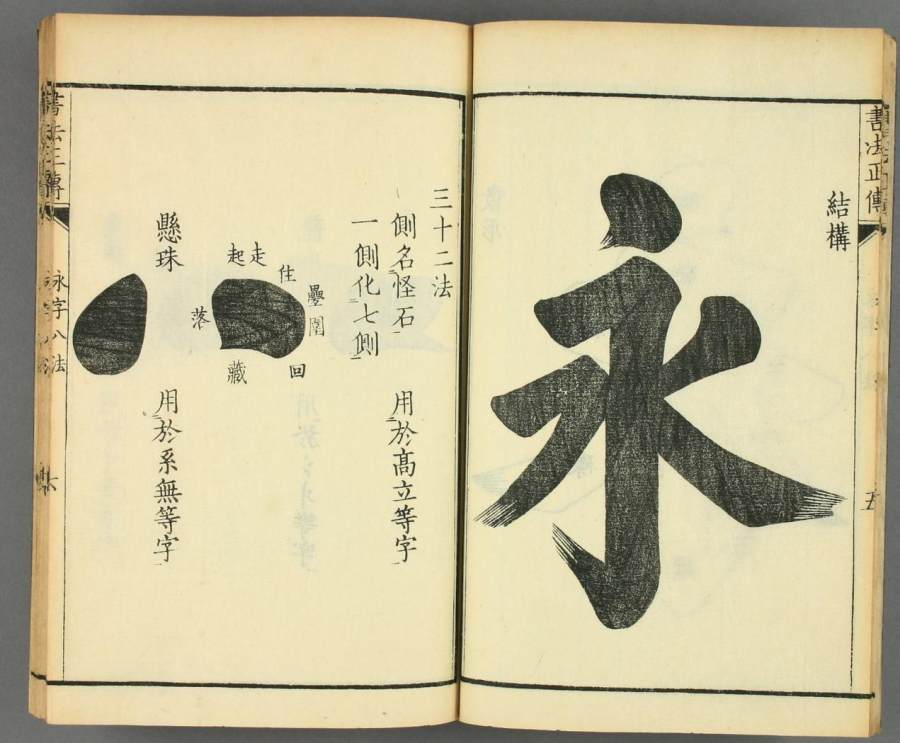 書法正傳
五
結構
永
三十二法
側名怪石 用於高立等字
一側化七側
疊圍
住
回
走
起
藏
落
懸珠 用於系無等字
書法正傳
永字八法